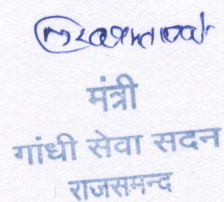 मंत्री
गांधी सेवा सदन
राजसमन्द